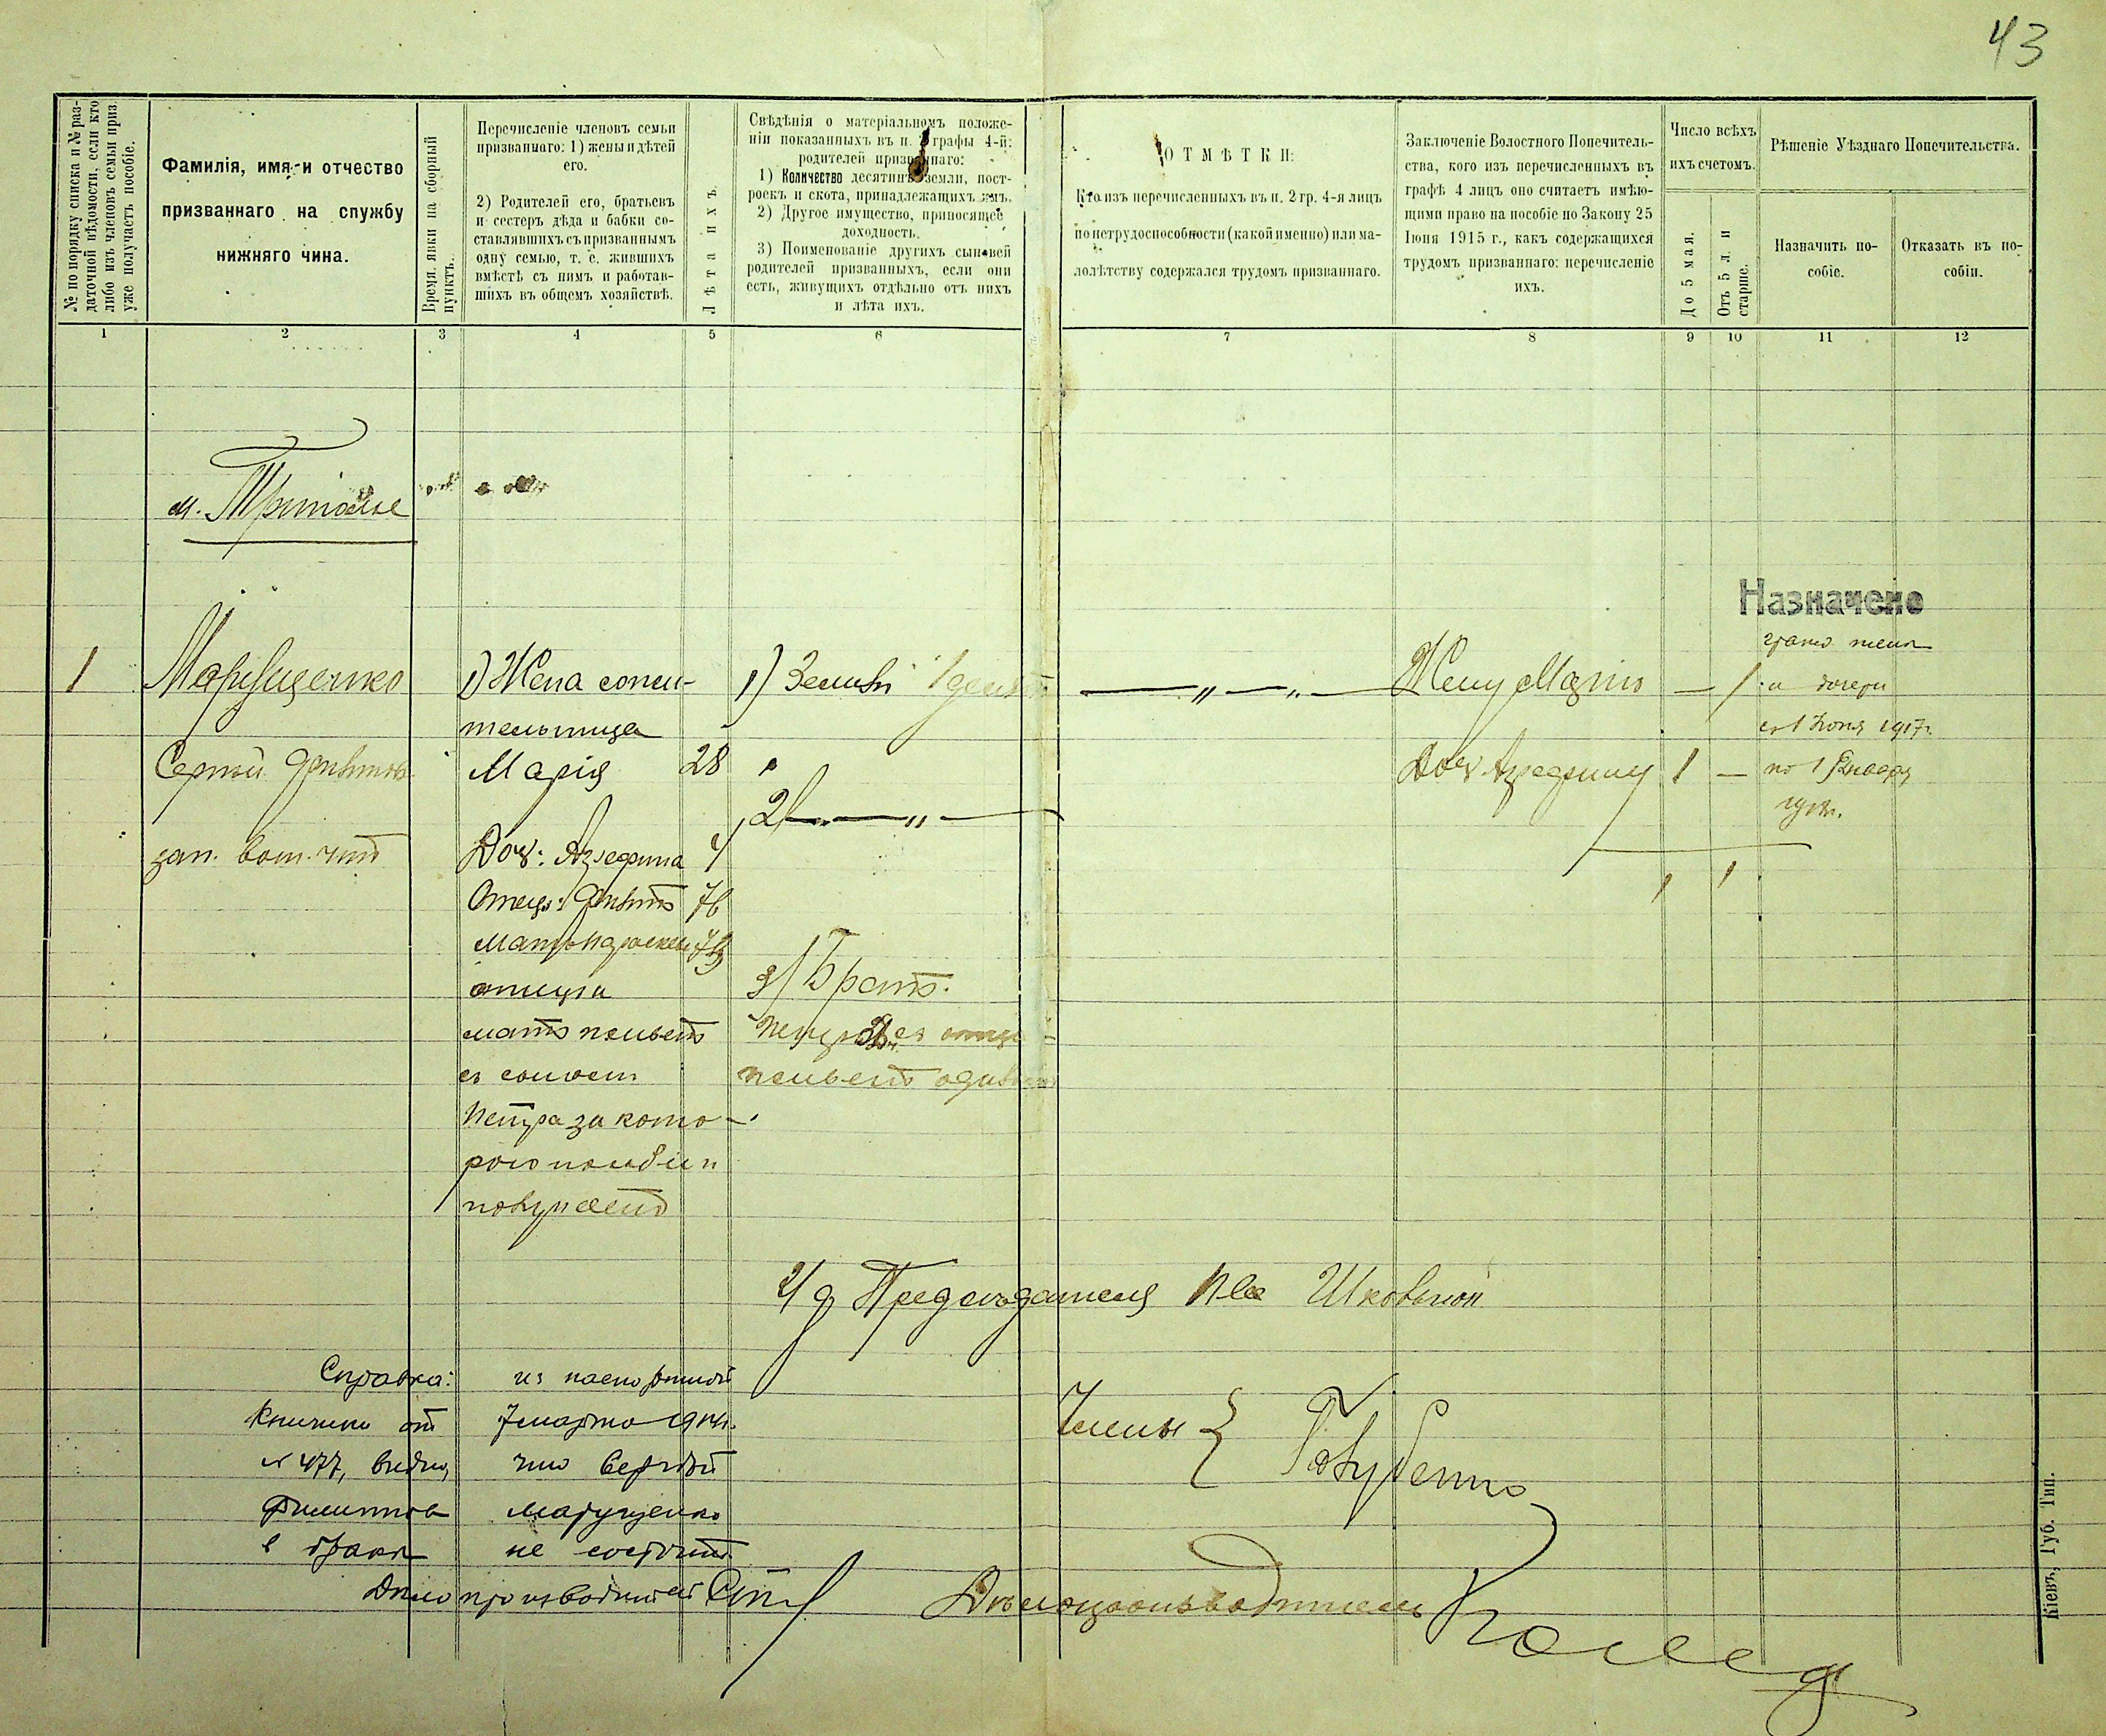 43
№ по порядку списка и № раз-
даточной вѣдомости, если кто
либо изъ членовъ семьи приз.
уже получаетъ пособіе.
Фамилія, имя и отчество
призваннаго на службу
нижняго чина.
Время явки на сборный
пунктъ.
Перечисленіе членовъ семьи
призваннаго: 1) жены и дѣтей
его.
2) Родителей его, братьевъ
и сестеръ дѣда и бабки со-
ставлявшихъ съ призваннымъ
одну семью, т. е. живших
вмѣстѣ съ нимъ и работав-
шихъ въ общемъ хозяйствѣ.
Лѣта ихъ.
Свѣдѣнія о матеріальномъ положе-
ніи показанныхъ въ п. 2 графы 4-й:
родителей призваннаго:
1) Количество десятинъ земли, пост-
роекъ и скота, принадлежащихъ имъ.
2) Другое имущество, приносящее
доходность.
3) Поименованіе другихъ сыновей
родителей призванныхъ, если они
есть, живущихъ отдѣльно отъ нихъ
и лѣта ихъ.
ОТМѢТКИ:
Кто изъ перечисленныхъ въ п. 2 гр. 4-я лицъ
по нетрудоспособности (какой именно) или ма-
лолѣтству содержался трудомъ призваннаго.
Заключеніе Волостного Попечитель-
ства, кого изъ перечисленныхъ въ
графѣ 4 лицъ оно считаетъ имѣю-
щими право на пособіе по Закону 25
Іюня 1915 г., какъ содержащихся
трудомъ призваннаго: перечисленіе
ихъ.
Число всѣхъ
ихъ счетомъ.
До 5 мая.
Отъ 5 л. и
старше.
Рѣшеніе Уѣзднаго Попечительства.
Назначить по-
собіе.
Отказать въ по-
собіи.
1 2 3 4 5 6 7 8 9 10 11 12
м. Триполье
Назначено
гражд. жена
и дочери
съ 1 Іюня 1917 г.
по 1 Января
1 Марущенко 1) Жена сожи- 1) Земли 1 десят — „ — „ — Жену Марію — 1
тельница
Сергѣй Филиппов Марія 28 Доч Азефину 1 —
2) — „ —
зап. Доч: Азефина 4
1 1
Отецъ: Филиппъ 76
Мать 73
отца и
мать живетъ
съ сыномъ
Петра за кото-
рого пособіи
получаетъ
3) Братъ.
Петръ отца
живетъ
И д Предсѣдателя
Справка: из паспортной
книжки от 7 марта
№ 477, видно, что Сергѣй
Филиппов Марущенко
в браке не состоит
Дѣлопроизводитель
Члены { Голубенко
Дѣлопроизводитель
Кіевъ, Губ. Тип.